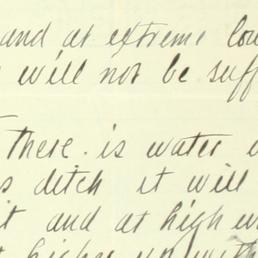 and at extreme low
will not be suff
There is water
s ditch it will
it and at high w
higher up with